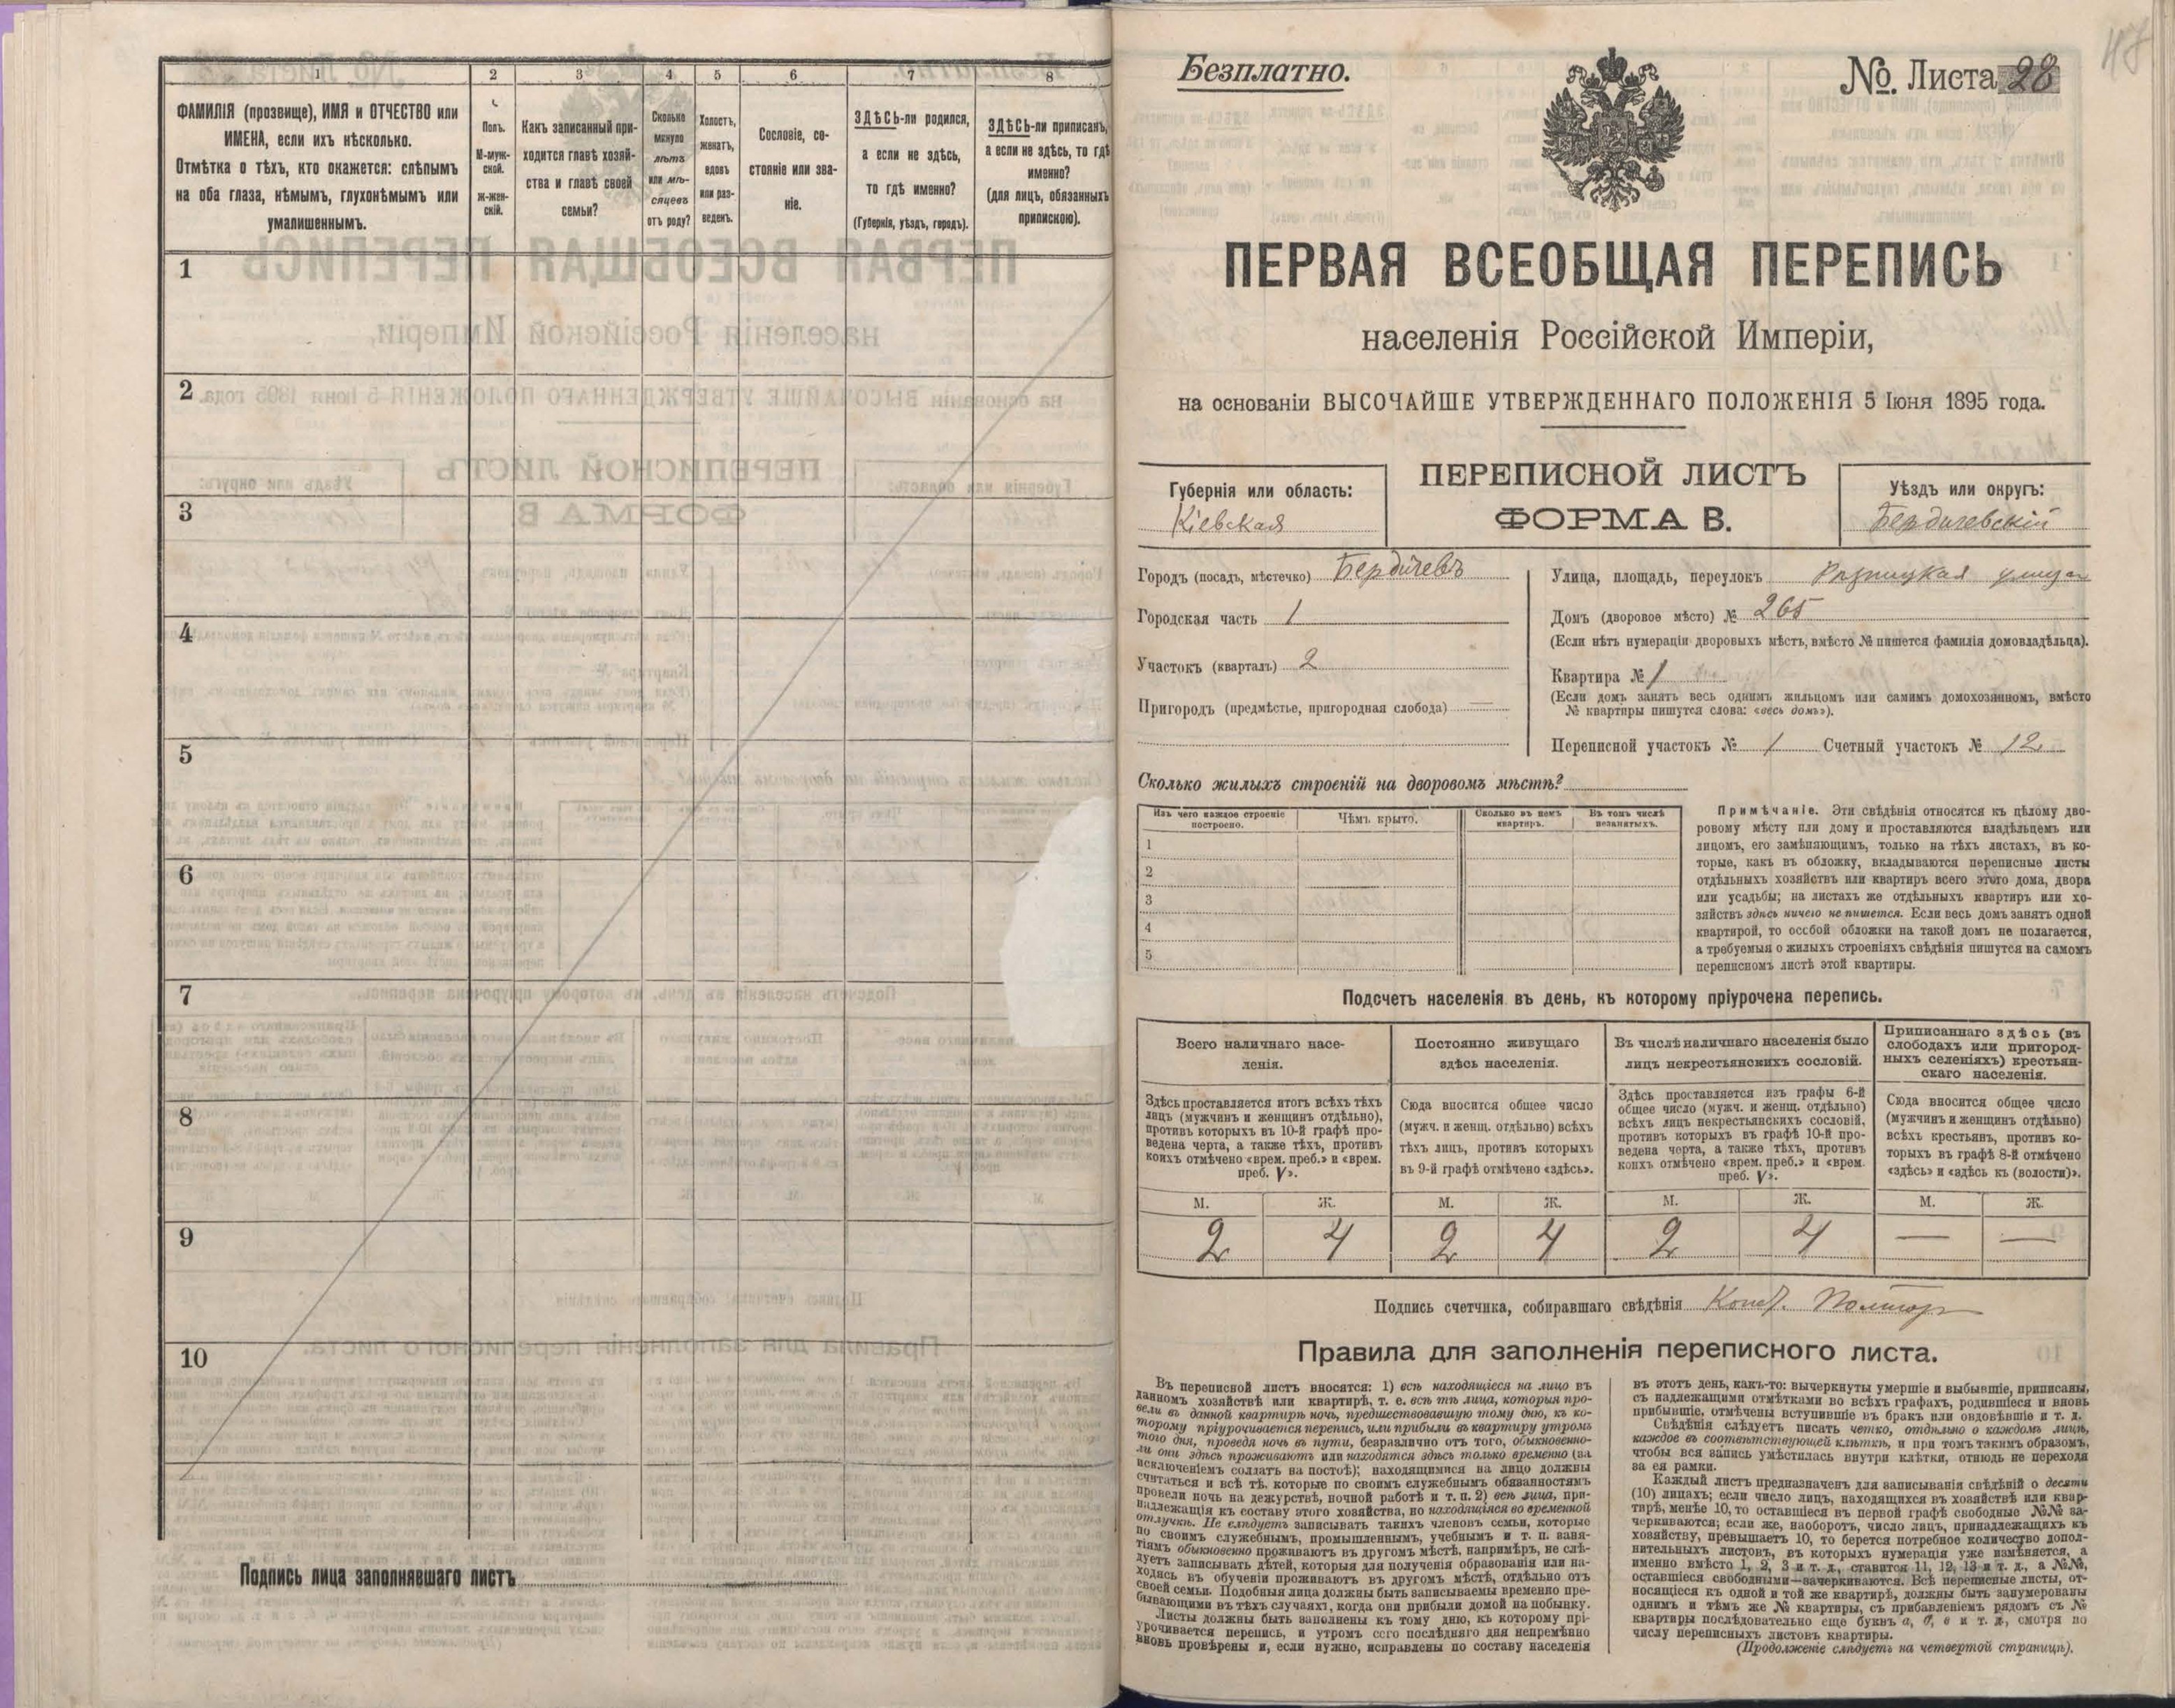 1 2 3 4 5 6 7 8
ФАМИЛІЯ (прозвище), ИМЯ и ОТЧЕСТВО или
ИМЕНА, если ихъ нѣсколько.
Отмѣтка о тѣхъ, кто окажется: слѣпымъ
на оба глаза, нѣмымъ, глухонѣмымъ или
умалишеннымъ.
Полъ.
М-муж-
ской.
ж-жен-
скій.
Какъ записанный при-
ходится главѣ хозяй-
ства и главѣ своей
семьи?
Сколько
минуло
лѣтъ
или мѣ-
сяцевъ
отъ роду?
Холостъ,
женатъ,
вдовъ
или раз-
веденъ.
Сословіе, со-
стояніе или зва-
ніе.
ЗДѢСЬ-ли родился,
а если не здѣсь,
то гдѣ именно?
(Губернія, уѣздъ, городъ).
ЗДѢСЬ-ли приписанъ,
а если не здѣсь, то гдѣ
именно?
(для лицъ, обязанныхъ
припискою).
1
2
3
4
5
6
7
8
9
10
Подпись лица заполнявшаго листъ
Безплатно.
№. Листа 28
ПЕРВАЯ ВСЕОБЩАЯ ПЕРЕПИСЬ
населенія Россійской Имперіи,
на основаніи ВЫСОЧАЙШЕ УТВЕРЖДЕННАГО ПОЛОЖЕНІЯ 5 Іюня 1895 года.
Губернія или область:
Кіевская
ПЕРЕПИСНОЙ ЛИСТЪ
ФОРМА В.
Уѣздъ или округъ:
Бердичевскій
Городъ (посадъ, мѣстечко) Бердичевъ
Городская часть 1
Участокъ (кварталъ) 2
Пригородъ (предмѣстье, пригородная слобода) —
Улица, площадь, переулокъ улица
Домъ (дворовое мѣсто) № 265
(Если нѣтъ нумераціи дворовыхъ мѣстъ, вмѣсто № пишется фамилія домовладѣльца).
Квартира № 1
(Если домъ занятъ весь однимъ жильцомъ или самимъ домохозяиномъ, вмѣсто
№ квартиры пишутся слова: «весь домъ»).
Переписной участокъ № 1 Счетный участокъ № 12
Сколько жилыхъ строеній на дворовомъ мѣстѣ?
Изъ чего каждое строеніе
построено.
Чѣмъ крыто.
Сколько въ немъ
квартиръ.
Въ томъ числѣ
незанятыхъ.
1
2
3
4
5
Примѣчаніе. Эти свѣдѣнія относятся къ цѣлому дво-
ровому мѣсту или дому и проставляются владѣльцемъ или
лицомъ, его замѣняющимъ, только на тѣхъ листахъ, въ ко-
торые, какъ въ обложку, вкладываются переписные листы
отдѣльныхъ хозяйствъ или квартиръ всего этого дома, двора
или усадьбы; на листахъ же отдѣльныхъ квартиръ или хо-
зяйствъ здѣсь ничего не пишется. Если весь домъ занятъ одной
квартирой, то особой обложки на такой домъ не полагается,
а требуемыя о жилыхъ строеніяхъ свѣдѣнія пишутся на самомъ
переписномъ листѣ этой квартиры.
Подсчетъ населенія въ день, къ которому пріурочена перепись.
Всего наличнаго насе-
ленія.
Здѣсь проставляется итогъ всѣхъ тѣхъ
лицъ (мужчинъ и женщинъ отдѣльно),
противъ которыхъ въ 10-й графѣ про-
ведена черта, а также тѣхъ, противъ
коихъ отмѣчено «врем. преб.» и «врем.
преб. V».
Постоянно живущаго
здѣсь населенія.
Сюда вносится общее число
(мужч. и женщ. отдѣльно) всѣхъ
тѣхъ лицъ, противъ которыхъ
въ 9-й графѣ отмѣчено «здѣсь».
Въ числѣ наличнаго населенія было
лицъ некрестьянскихъ сословій.
Здѣсь проставляется изъ графы 6-й
общее число (мужч. и женщ. отдѣльно)
всѣхъ лицъ некрестьянскихъ сословій,
противъ которыхъ въ графѣ 10-й про-
ведена черта, а также тѣхъ, противъ
коихъ отмѣчено «врем. преб.» и «врем.
преб. V».
Приписаннаго здѣсь (въ
слободахъ или пригород-
ныхъ селеніяхъ) крестьян-
скаго населенія.
Сюда вносится общее число
(мужчинъ и женщинъ отдѣльно)
всѣхъ крестьянъ, противъ ко-
торыхъ въ графѣ 8-й отмѣчено
«здѣсь» и «здѣсь къ (волости)».
М. Ж. М. Ж. М. Ж. М. Ж.
2 4 2 4 2 4 — —
Подпись счетчика, собиравшаго свѣдѣнія
Правила для заполненія переписного листа.
Въ переписной листъ вносятся: 1) всѣ находящіеся на лицо въ
данномъ хозяйствѣ или квартирѣ, т. е. всѣ тѣ лица, которыя про-
вели въ данной квартирѣ ночь, предшествовавшую тому дню, къ ко-
торому пріурочивается перепись, или прибыли въ квартиру утромъ
того дня, проведя ночь въ пути, безразлично отъ того, обыкновенно-
ли они здѣсь проживаютъ или находятся здѣсь только временно (за
исключеніемъ солдатъ на постоѣ); находящимися на лицо должны
считаться и всѣ тѣ, которые по своимъ служебнымъ обязанностямъ
провели ночь на дежурствѣ, ночной работѣ и т. п. 2) всѣ лица, при-
надлежащія къ составу этого хозяйства, но находящіяся во временной
отлучкѣ. Не слѣдуетъ записывать такихъ членовъ семьи, которые
по своимъ служебнымъ, промышленнымъ, учебнымъ и т. п. заня-
тіямъ обыкновенно проживаютъ въ другомъ мѣстѣ, напримѣръ, не слѣ-
дуетъ записывать дѣтей, которыя для полученія образованія или на-
ходясь въ обученіи проживаютъ въ другомъ мѣстѣ, отдѣльно отъ
своей семьи. Подобныя лица должны быть записываемы временно пре-
бывающими въ тѣхъ случаяхъ, когда они прибыли домой на побывку.
Листы должны быть заполнены къ тому дню, къ которому прі-
урочивается перепись, и утромъ сего послѣдняго дня непремѣнно
вновь провѣрены и, если нужно, исправлены по составу населенія
въ этотъ день, какъ-то: вычеркнуты умершіе и выбывшіе, приписаны,
съ надлежащими отмѣтками во всѣхъ графахъ, родившіеся и вновь
прибывшіе, отмѣчены вступившіе въ бракъ или овдовѣвшіе и т. д.
Свѣдѣнія слѣдуетъ писать четко, отдѣльно о каждомъ лицѣ,
каждое въ соотвѣтствующей клѣткѣ, и при томъ такимъ образомъ,
чтобы вся запись умѣстилась внутри клѣтки, отнюдь не переходя
за ея рамки.
Каждый листъ предназначенъ для записыванія свѣдѣній о десяти
(10) лицахъ; если число лицъ, находящихся въ хозяйствѣ или квар-
тирѣ, менѣе 10, то оставшіеся въ первой графѣ свободные №№ за-
черкиваются; если же, наоборотъ, число лицъ, принадлежащихъ къ
хозяйству, превышаетъ 10, то берется потребное количество допол-
нительныхъ листовъ, въ которыхъ нумерація уже измѣняется, а
именно вмѣсто 1, 2, 3 и т. д., ставится 11, 12, 13 и т. д., а №№,
оставшіеся свободными—зачеркиваются. Всѣ переписные листы, от-
носящіеся къ одной и той же квартирѣ, должны быть занумерованы
однимъ и тѣмъ же № квартиры, съ прибавленіемъ рядомъ съ №
квартиры послѣдовательно еще буквъ а, б, в и т. д., смотря по
числу переписныхъ листовъ квартиры.
(Продолженіе слѣдуетъ на четвертой страницѣ).